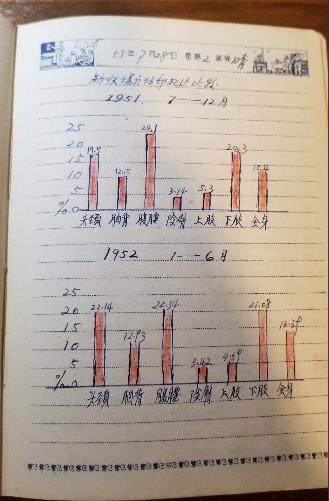 53年7月28日 星期2 气候 晴
1951. 7——12月
25
20
15
10
5
%0
19.5 12.5 24.1 3.14 5.3 20.3 15.4
头颈 胸背 腹腰 阴臀 上肢 下肢 全身
1952 1——6月
25
20
15
10
5
%0
22.14 12.93 22.34 3.42 4.59 21.08 13.39
头颈 胸背 腹腰 阴臀 上肢 下肢 全身